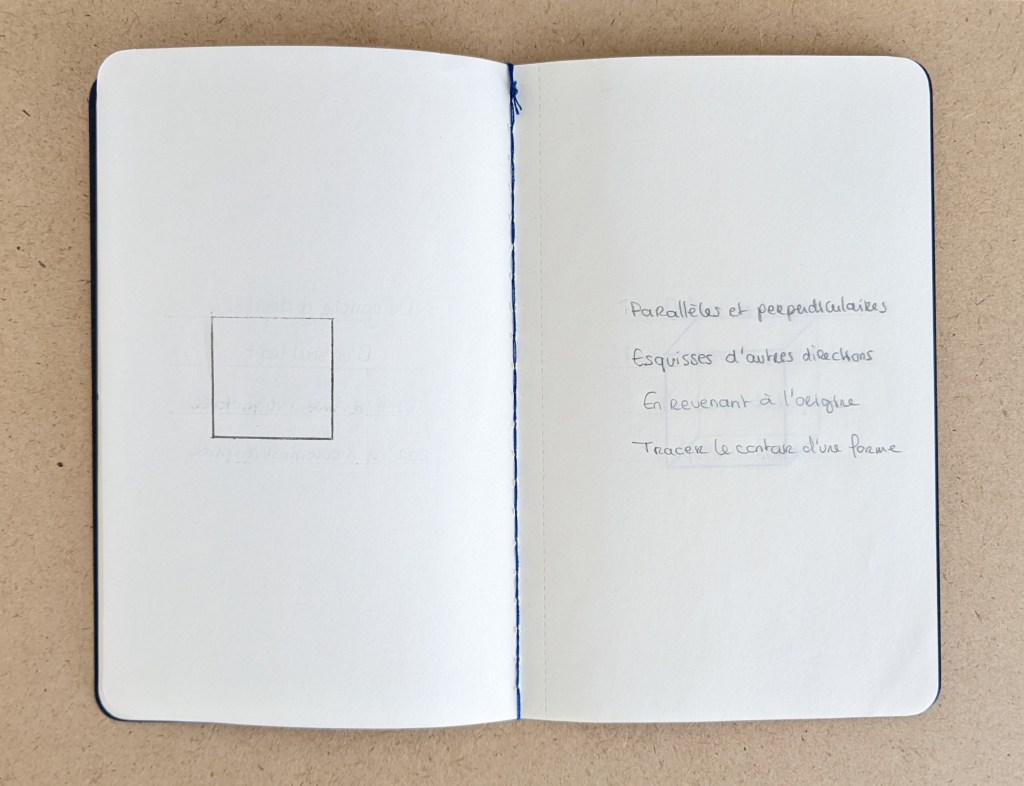 Parallèles et perpendiculaires
Esquisses d'autres directions
En revenant à l'origine
Tracer le contour d'une forme